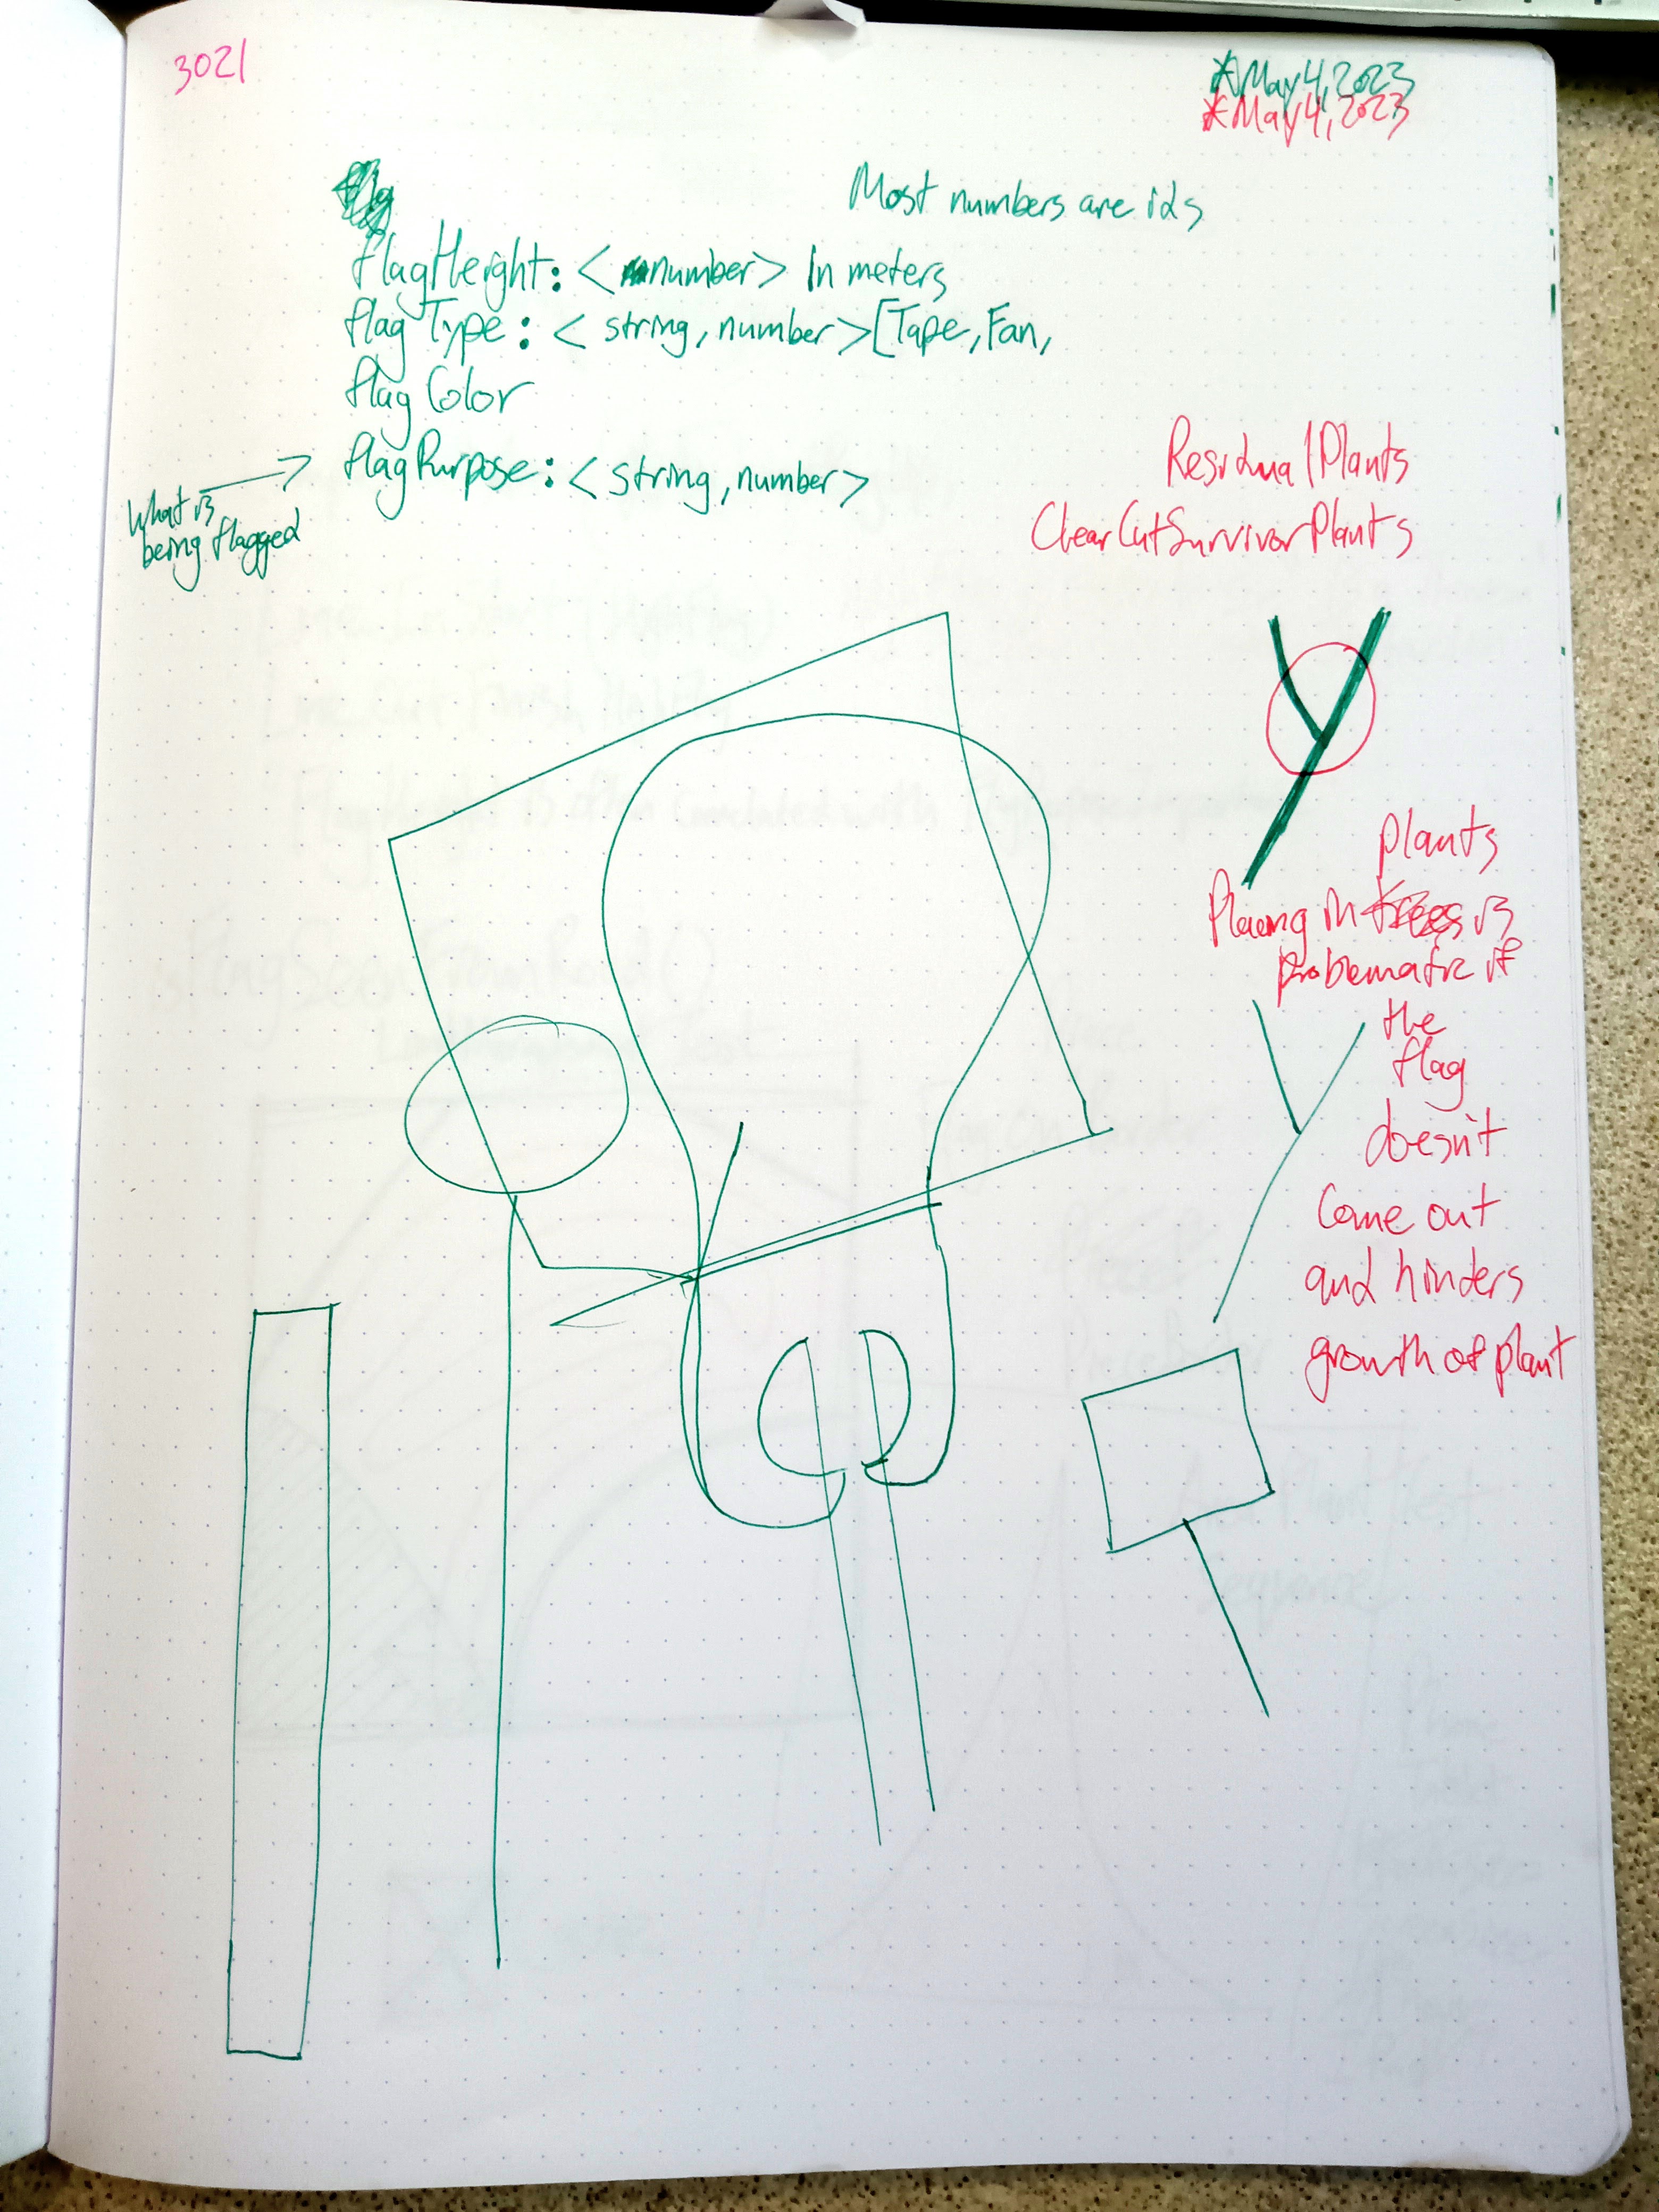 3021
*May 4, 2023
*May 4, 2023
Most numbers are ids
flagHeight: <number> In meters
flagType: < string, number>[Tape, Fan,
flagColor
flagPurpose: < string, number>
What is
being flagged
ResidualPlants
ClearCutSurvivorPlants
plants
Placing in trees is
problematic if
the
flag
doesn't
Come out
and hinders
growth of plant